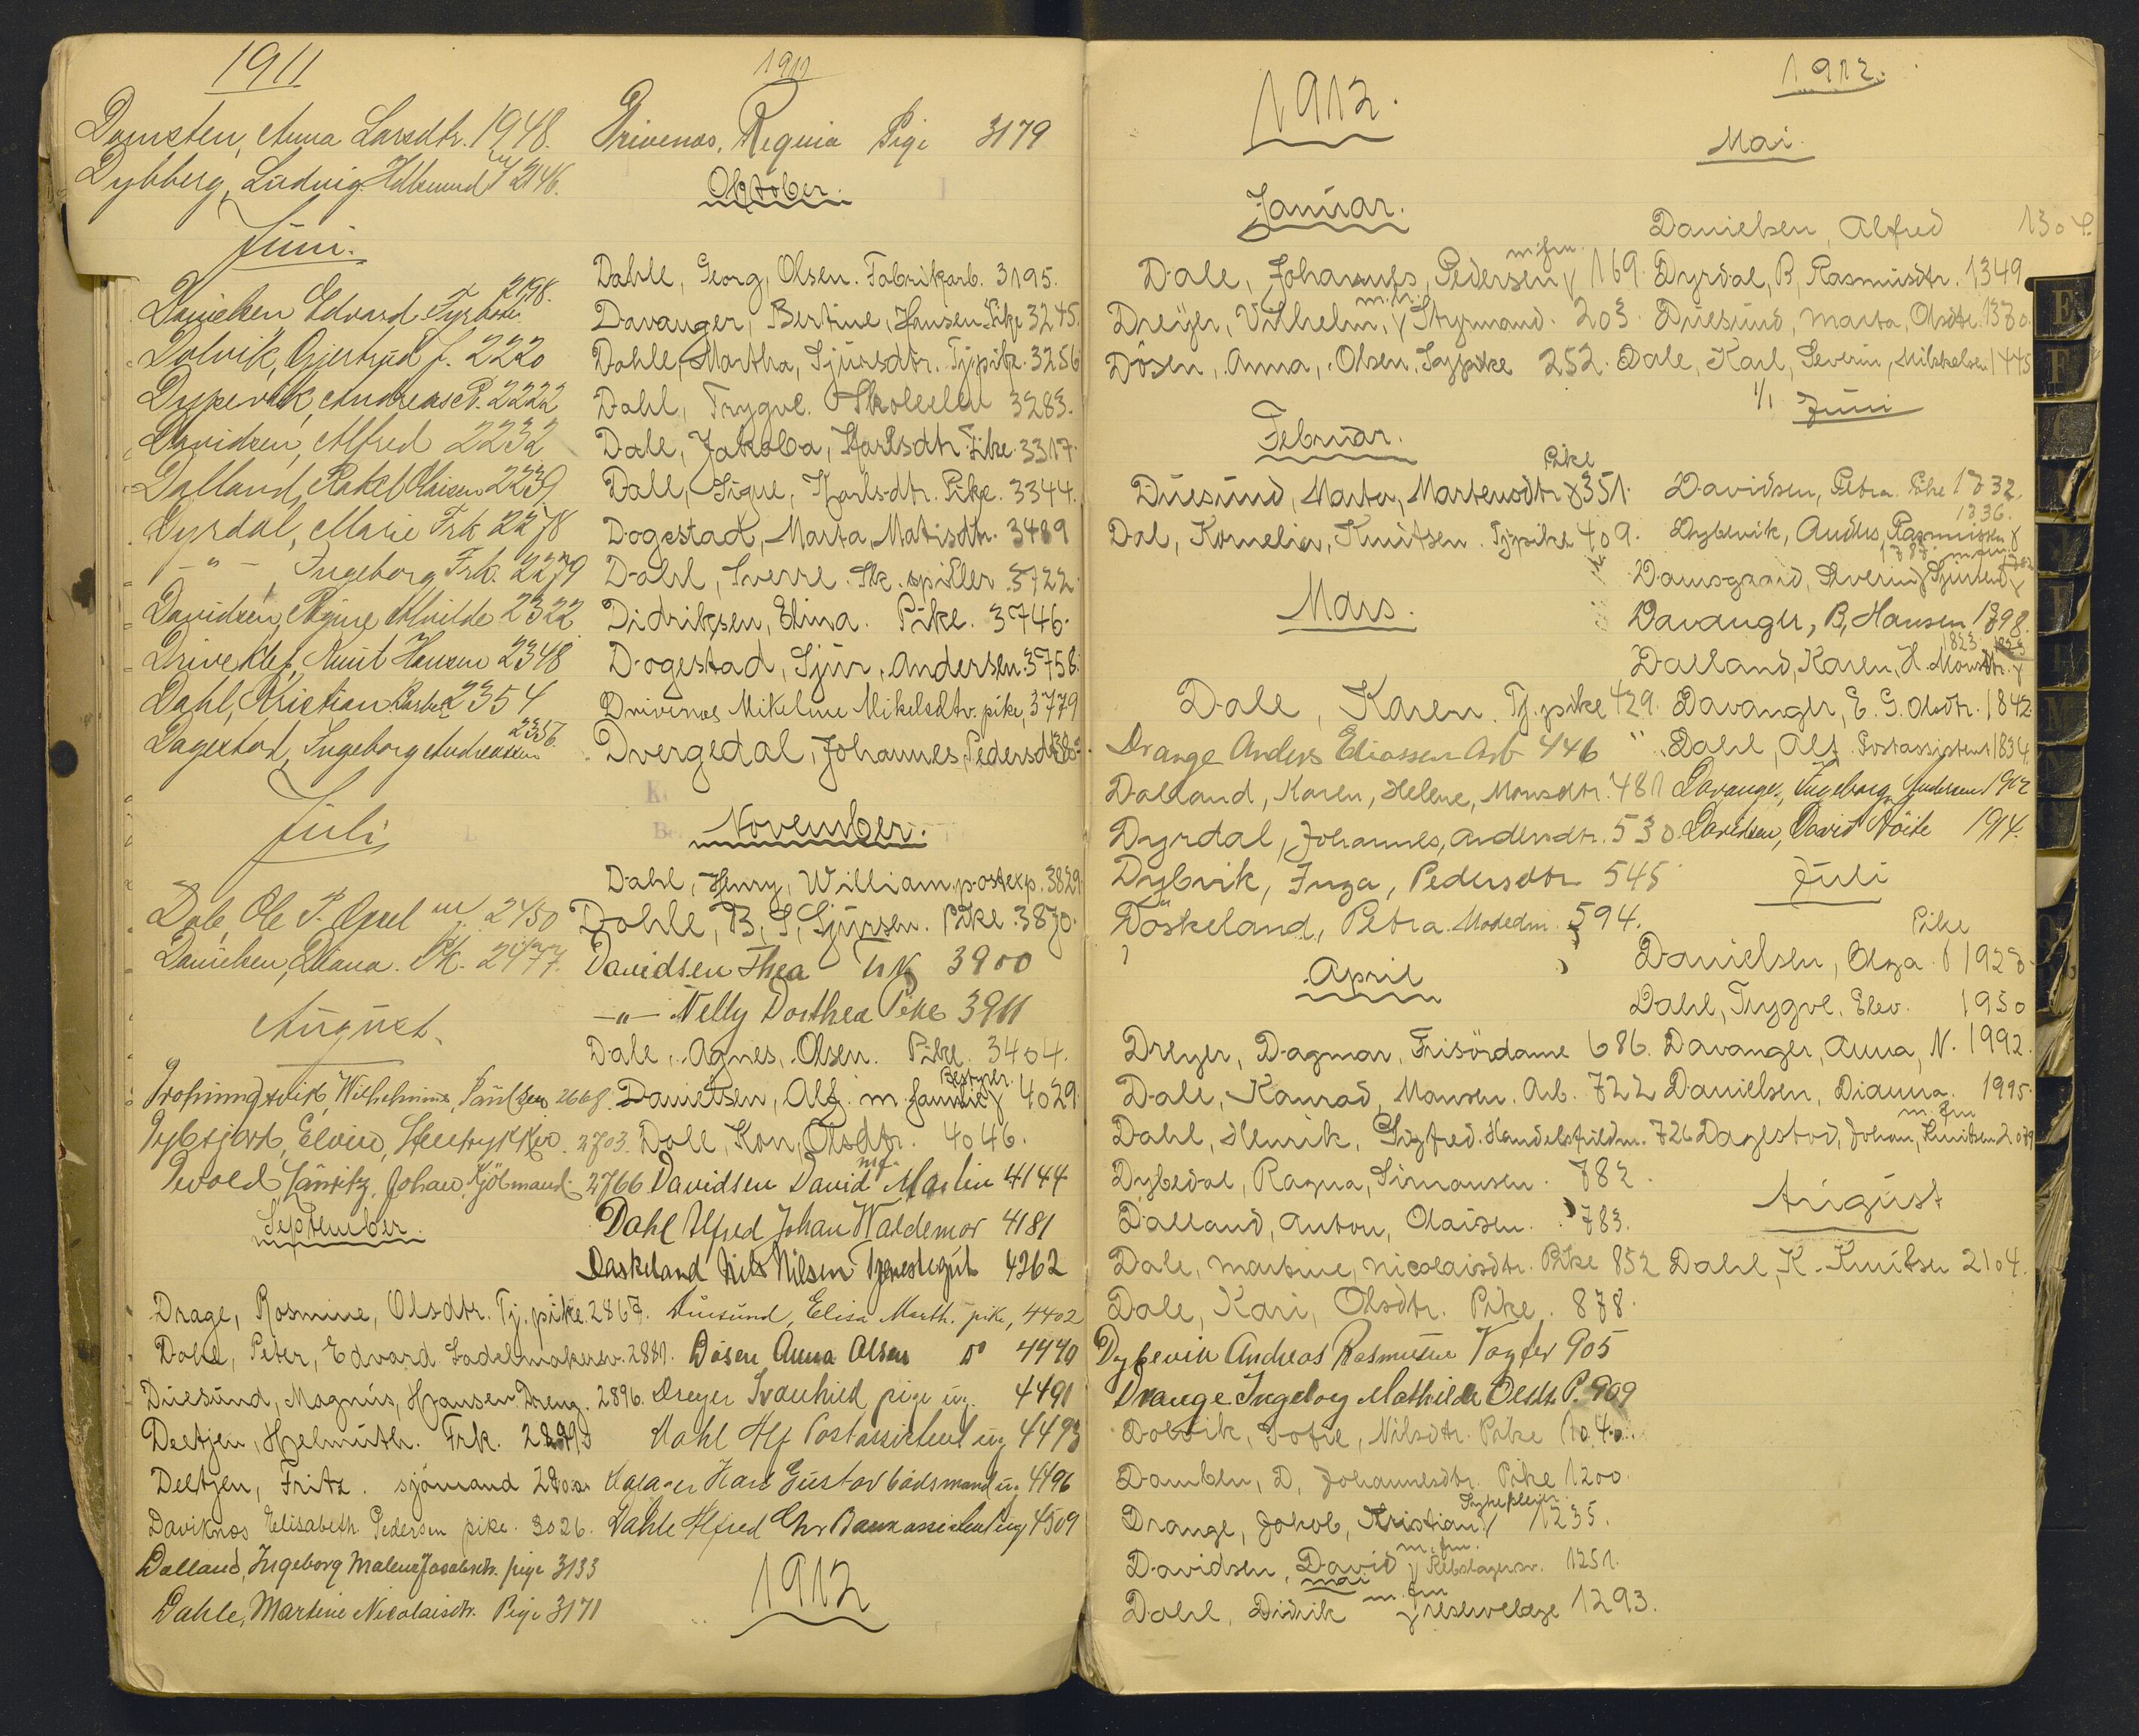 1911
Domsten, Anna Larsdtr. 1948.
Dybberg, Ludvig 2146.
Juni.
Danielsen Edvard Fyrbøder 2198.
Dolvik, Gjertrud J. 2220
Dypevik, Andreas P. 2222
Davidsen, Alfred 2232
Dalland, Rakel Olaisen 2239
Dyrdal, Marie Frk 2278
-"- Ingeborg Frk. 2279
Davidsen, Alvilde 2322
Driveklep, Knut Hansen 2348
Dahl, Kristian Barber 2354
Dagestad, Ingeborg Andreasen 2356.
Juli
Dale, Ole P. 2450
Danielsen, Diana. Pk. 2477.
August.
Wilhelmine, Paulsen 2668.
Dybsjord, Elvin, Stentrykker. 2703.
Devold, Lauritz, Johan, Kjøbmand. 2766
September.
Drage, Rosmine, Olsdtr. Tj. pike. 2867.
Dahl, Peter, Edvard Sadelmakersv. 2881.
Duesund, Magnus, Hansen Dreng. 2896.
Deetjen, Helmuth. Frk.
Deetjen, Fritz. sjömand
Daviknes Elisabeth Pedersen pike. 3026.
Dalland, Ingeborg Malene Jacobsdtr. pige 3133
Dahle, Martine Nicolaisdtr. Pige 3171
1911
Drivenes, Regina Pige 3179
Oktober.
Dahle, Georg, Olsen. Fabrikarb. 3195.
Davanger, Bertine, Hansen Pike 3245.
Dahle, Martha, Sjursdtr. Tj.pike. 3256
Dahl, Trygve. Skoleelev 3283.
Dale, Jakoba, Karlsdtr Pike. 3317.
Dale, Signe, Karlsdtr. Pike. 3344.
Dogestad, Marta, Matisdtr. 3469
Dahl, Sverre. Sk. spiller. 3722
Didriksen, Elina. Pike. 3746.
Dogestad, Sjur, Andersen. 3758.
Drivenes Mikeline Mikelsdtr. pike, 3779
Dvergedal, Johannes, Pedersdtr
November.
Dahl, Henry, William. postexp. 3829
Dahle, B, S, Sjursen. Pike. 3870.
Davidsen Thea 3900
-"- Nelly Dorthea Pike 3911
Dale, Agnes, Olsen. Pike. 3404.
Danielsen, Alf. m. Bestyrer. 4029
Dale, Kon, Olsdtr. 4046.
Davidsen David Martin 4144
Dahl Alfred Johan Waldemar 4181
Daskeland Nils Nilsen Tjenestegut 4262
Duesund, Elisa Marth. pike, 4402
Døsen Anna Olsen Do 4440
Dreyer Svanhild pige ug. 4491
Dahl Alf Postassistent ug 4493
Karl Gustav bådsmand ug 4496
Dahle Alfred Chr Bankassistent ug 4509
1912
1912.
Januar.
Dale, Johannes, Pedersen m.fru. 169.
Dreÿer, Vilhelm, Styrmand. 203.
Dösen, Anna, Olsen. Sypike 252.
Februar.
Duesund, Marta, Martensdtr Pike 351.
Dal, Kornelia, Knutsen. Tj.pike 409.
Mars.
Dale, Karen. Tj.pike 429.
Drange Anders Eliassen Arb 446
Dalland, Karen, Helene, Monsdtr. 481
Dyrdal, Johannes, Andersdtr. 530.
Dybvik, Inga, Pedersdtr 545
Döskeland, Petra. Modedm. 594.
April
Dreyer, Dagmar, Frisördame 686.
Dale, Konrad, Monsen. Arb. 722
Dahl, Henrik, Sigfred. Handelsfuldm. 726
Dybedal, Ragna, Simonsen. 782.
Dalland, Anton, Olaisen. 783.
Dale, Martine, Nicolaisdtr. Pike 852
Dale, Kari, Olsdtr. Pike. 878.
Dybevik Andreas Rasmusen Vogter 905
Drange Ingeborg Mathilde Olsdtr P. 909
Dolvik, Sofie, Nilsdtr. Pike 1040.
Domben, D, Johannesdtr. Pike 1200.
Drange, Jakob, Kristian. Sykepleier 1235.
Davidsen, David m.fru. Rebslagersv. 1251.
Mai
Dahl, Didrik m.fru 1293.
1912.
Mai.
Danielsen, Alfred 1304.
Dyrdal, B, Rasmusdtr. 1349
Duesund, Marta, Olsdtr. 1370.
Dale, Karl, Severin, Mikkelsen 1445
1/1 Juni
Davidsen, Petra. Pike 1732.
Dybvik, Anders, Rasmussen 1736.
Damsgaard, Severin, Sjursen 1787. m.fru
Davanger, B, Hansen 1798.
Dalland, Karen, H. Monsdtr. 1823
Davanger, E. G. Olsdtr. 1842
" Dahl, Alf. Postassistent 1834.
Davanger, Ingeborg Andersen 1912
Davidsen, David 1914.
Juli
Danielsen, Olga. Pike 1928.
Dahl, Trygve. Elev. 1950
Davanger, Anna, N. 1992.
Danielsen, Dianna. 1995.
Dagestad, Johan, Knutsen m.fru 2079
August
Dahl, K. Knutsen 2104.
E
F